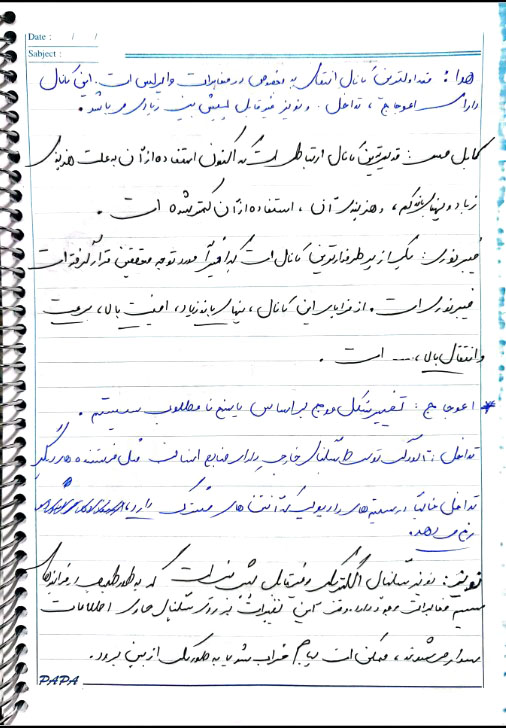 Date : / /
Subject :
هوا : متداولترین کانال انتقال به خصوص در مخابرات وایرلس است. این کانال
دارای اعوجاج ، تداخل و نویز غیرقابل پیش بینی زیادی می باشد .
کابل مسی : قدیمی‌ترین کانال ارتباطی است که اکنون استفاده از آن به علت هزینه‌ی
زیاد و پهنای باند کم ، و هزینه‌ی آن ، استفاده از آن کمتر شده است .
فیبر نوری : یکی از پرطرفدارترین کانال است که اخیراً مورد توجه محققین قرار گرفته است
فیبر نوری است . از مزایای این کانال ، پهنای باند زیاد ، امنیت بالا ، سرعت
و انتقال بالا ، ... است .
* اعوجاج : تغییر شکل موج بر اساس پاسخ نامطلوب سیستم .
تداخل : آلودگی توسط سیگنال‌های خارجی دارای منابع انسانی مثل فرستنده های دیگر
تداخل غالباً در سیستم‌های رادیویی که آنتن‌های مشترک دارند
رخ می دهد.
نویز : نویز سیگنال الکتریکی و غیرقابل پیش بینی است که به طور طبیعی در فرآیندهای
سیستم مخابرات وجود دارد. وقتی این تغییرات بر روی سیگنال حاوی اطلاعات
سوار می‌شوند ، ممکن است پیام خراب شود یا به طور کلی از بین برود .
PAPA